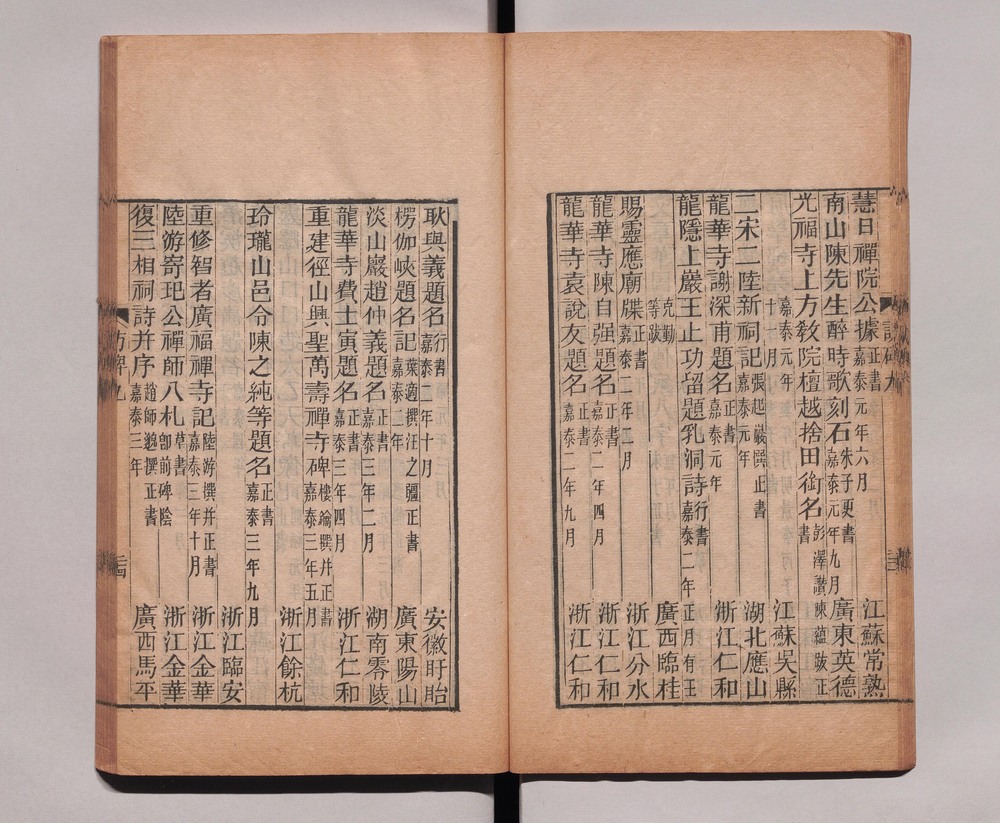 慧日禪院公據 正書 嘉泰元年六月 江蘇常熟
南山陳先生醉時歌刻石 朱子更書 嘉泰元年九月 廣東英德
光福寺上方教院檀越捨田銜名 彭澤讚 陳蘊跋 正書
嘉泰元年十一月 江蘇吳縣
二宋二陸新祠記 張起巖撰 正書 嘉泰元年 湖北應山
龍華寺謝深甫題名 正書 嘉泰元年 浙江仁和
龍隱上巖王止功留題乳洞詩 行書 嘉泰二年正月 有王
克勤等跋 廣西臨桂
賜靈應廟牒 正書 嘉泰二年二月 浙江分水
龍華寺陳自强題名 正書 嘉泰二年四月 浙江仁和
龍華寺袁說友題名 正書 嘉泰二年九月 浙江仁和
耿與義題名 行書 嘉泰二年十月 安徽盱眙
楞伽峽題名記 葉適撰 汪之疆正書 嘉泰二年 廣東陽山
淡山巖趙仲義題名 正書 嘉泰三年二月 湖南零陵
龍華寺費士寅題名 正書 嘉泰三年四月 浙江仁和
重建徑山興聖萬壽禪寺碑 樓鑰撰并正書 嘉泰三年五月
浙江餘杭
玲瓏山邑令陳之純等題名 正書 嘉泰三年九月
浙江臨安
重修智者廣福禪寺記 陸游撰并正書 嘉泰三年十月 浙江金華
陸游寄玘公禪師八札 草書 即前碑陰 浙江金華
復三相祠詩并序 趙師撰 正書 嘉泰三年 廣西馬平
訪碑九